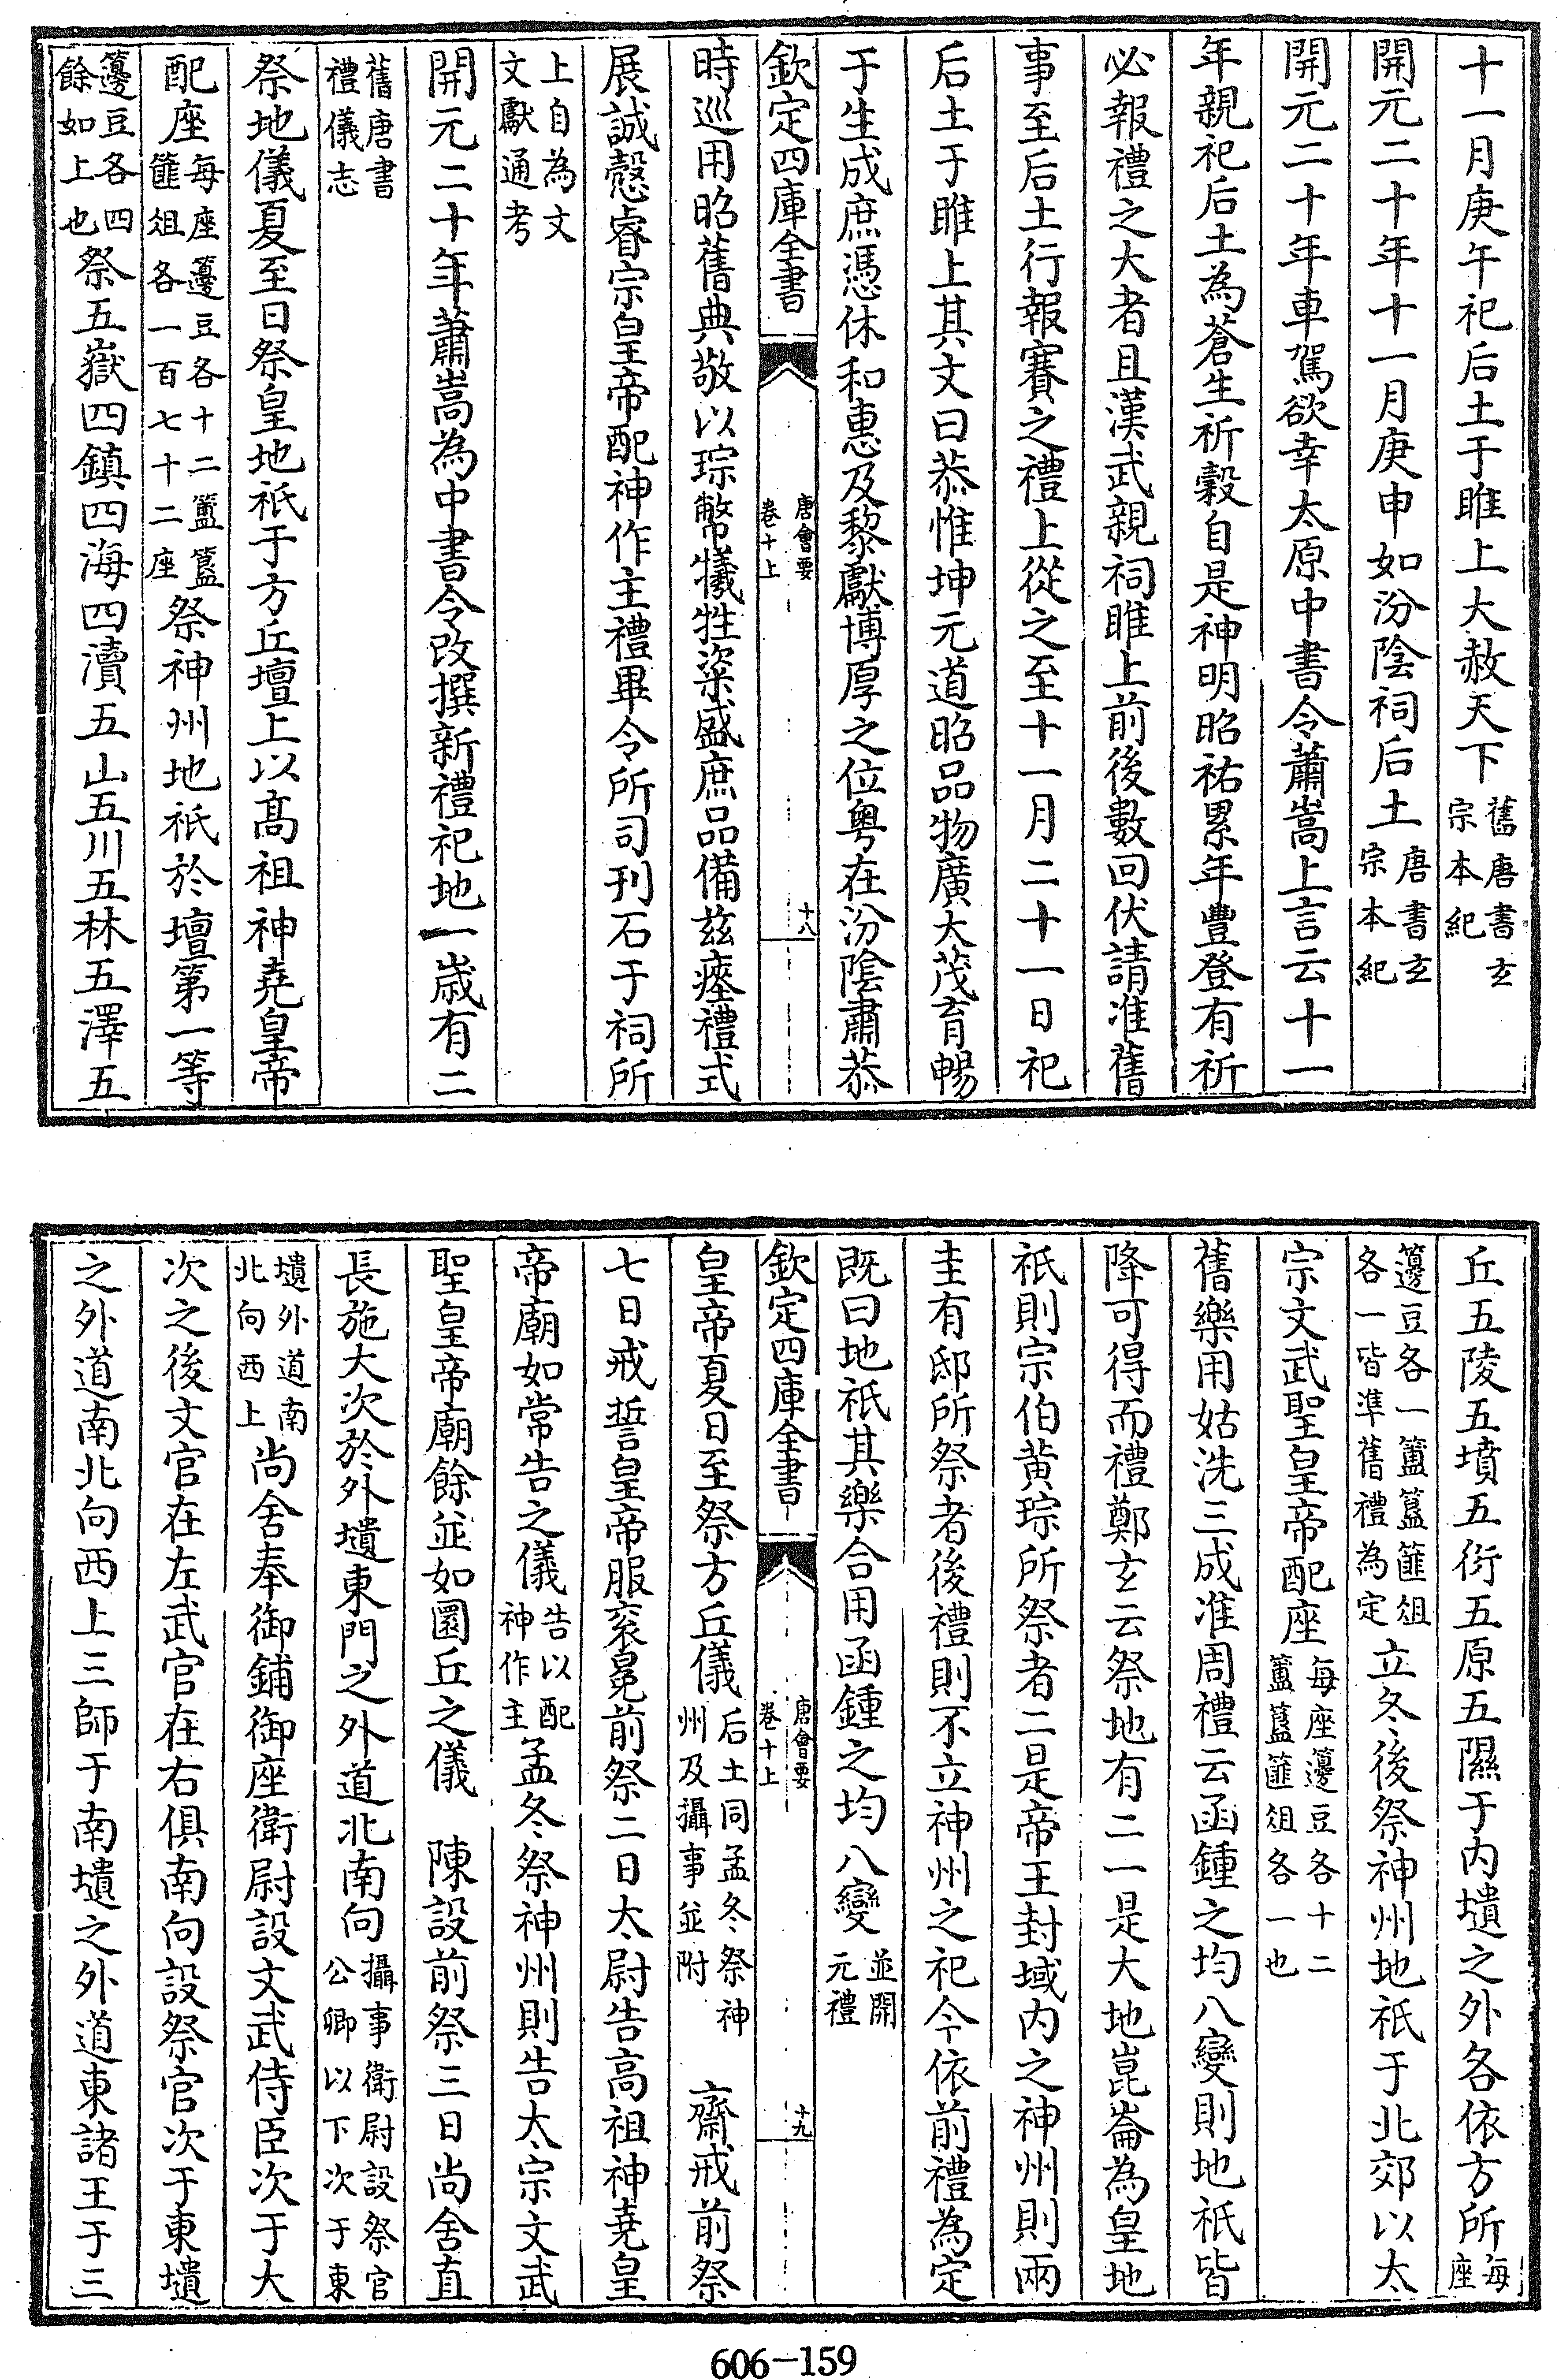 十一月庚午祀后土于脽上大赦天下舊唐書玄宗本紀
開元二十年十一月庚申如汾陰祠后土唐書玄宗本紀
開元二十年車駕欲幸太原中書令蕭嵩上言云十一
年親祀后土為蒼生祈穀自是神明昭祐累年豐登有祈
必報禮之大者且漢武親祠脽上前後數回伏請准舊
事至后土行報賽之禮上從之至十一月二十一日祀
后土于脽上其文曰恭惟坤元道昭品物廣大茂育暢
于生成庶憑休和惠及黎獻博厚之位粤在汾陰肅恭
欽定四庫全書 唐會要 卷十上 十八
時巡用昭舊典敬以琮幣犧牲粢盛庶品備茲瘞禮式
展誠慤睿宗皇帝配神作主禮畢令所司刋石于祠所
上自為文文獻通考
開元二十年蕭嵩為中書令改撰新禮祀地一歲有二
舊唐書禮儀志
祭地儀夏至日祭皇地祇于方丘壇上以高祖神堯皇帝
配座每座籩豆各十二簠簋篚俎各一百七十二座祭神州地祇於壇第一等
籩豆各四餘如上也祭五嶽四鎮四海四瀆五山五川五林五澤五
丘五陵五墳五衍五原五隰于内壝之外各依方所每座
籩豆各一簠簋篚俎各一皆準舊禮為定立冬後祭神州地祇于北郊以太
宗文武聖皇帝配座每座籩豆各十二簠簋篚俎各一也
舊樂用姑洗三成准周禮云函鍾之均八變則地祇皆
降可得而禮鄭玄云祭地有二一是大地崑崙為皇地
祇則宗伯黄琮所祭者二是帝王封域内之神州則兩
圭有邸所祭者後禮則不立神州之祀今依前禮為定
既曰地祇其樂合用函鍾之均八變並開元禮
欽定四庫全書 唐會要 卷十上 十九
皇帝夏日至祭方丘儀后土同孟冬祭神州及攝事並附 齋戒前祭
七日戒誓皇帝服衮冕前祭二日太尉告高祖神堯皇
帝廟如常告之儀告以配神作主孟冬祭神州則告太宗文武
聖皇帝廟餘並如圜丘之儀 陳設前祭三日尚舍直
長施大次於外壝東門之外道北南向攝事衛尉設祭官公卿以下次于東
壝外道南北向西上尚舍奉御鋪御座衛尉設文武侍臣次于大
次之後文官在左武官在右俱南向設祭官次于東壝
之外道南北向西上三師于南壝之外道東諸王于三
606-159